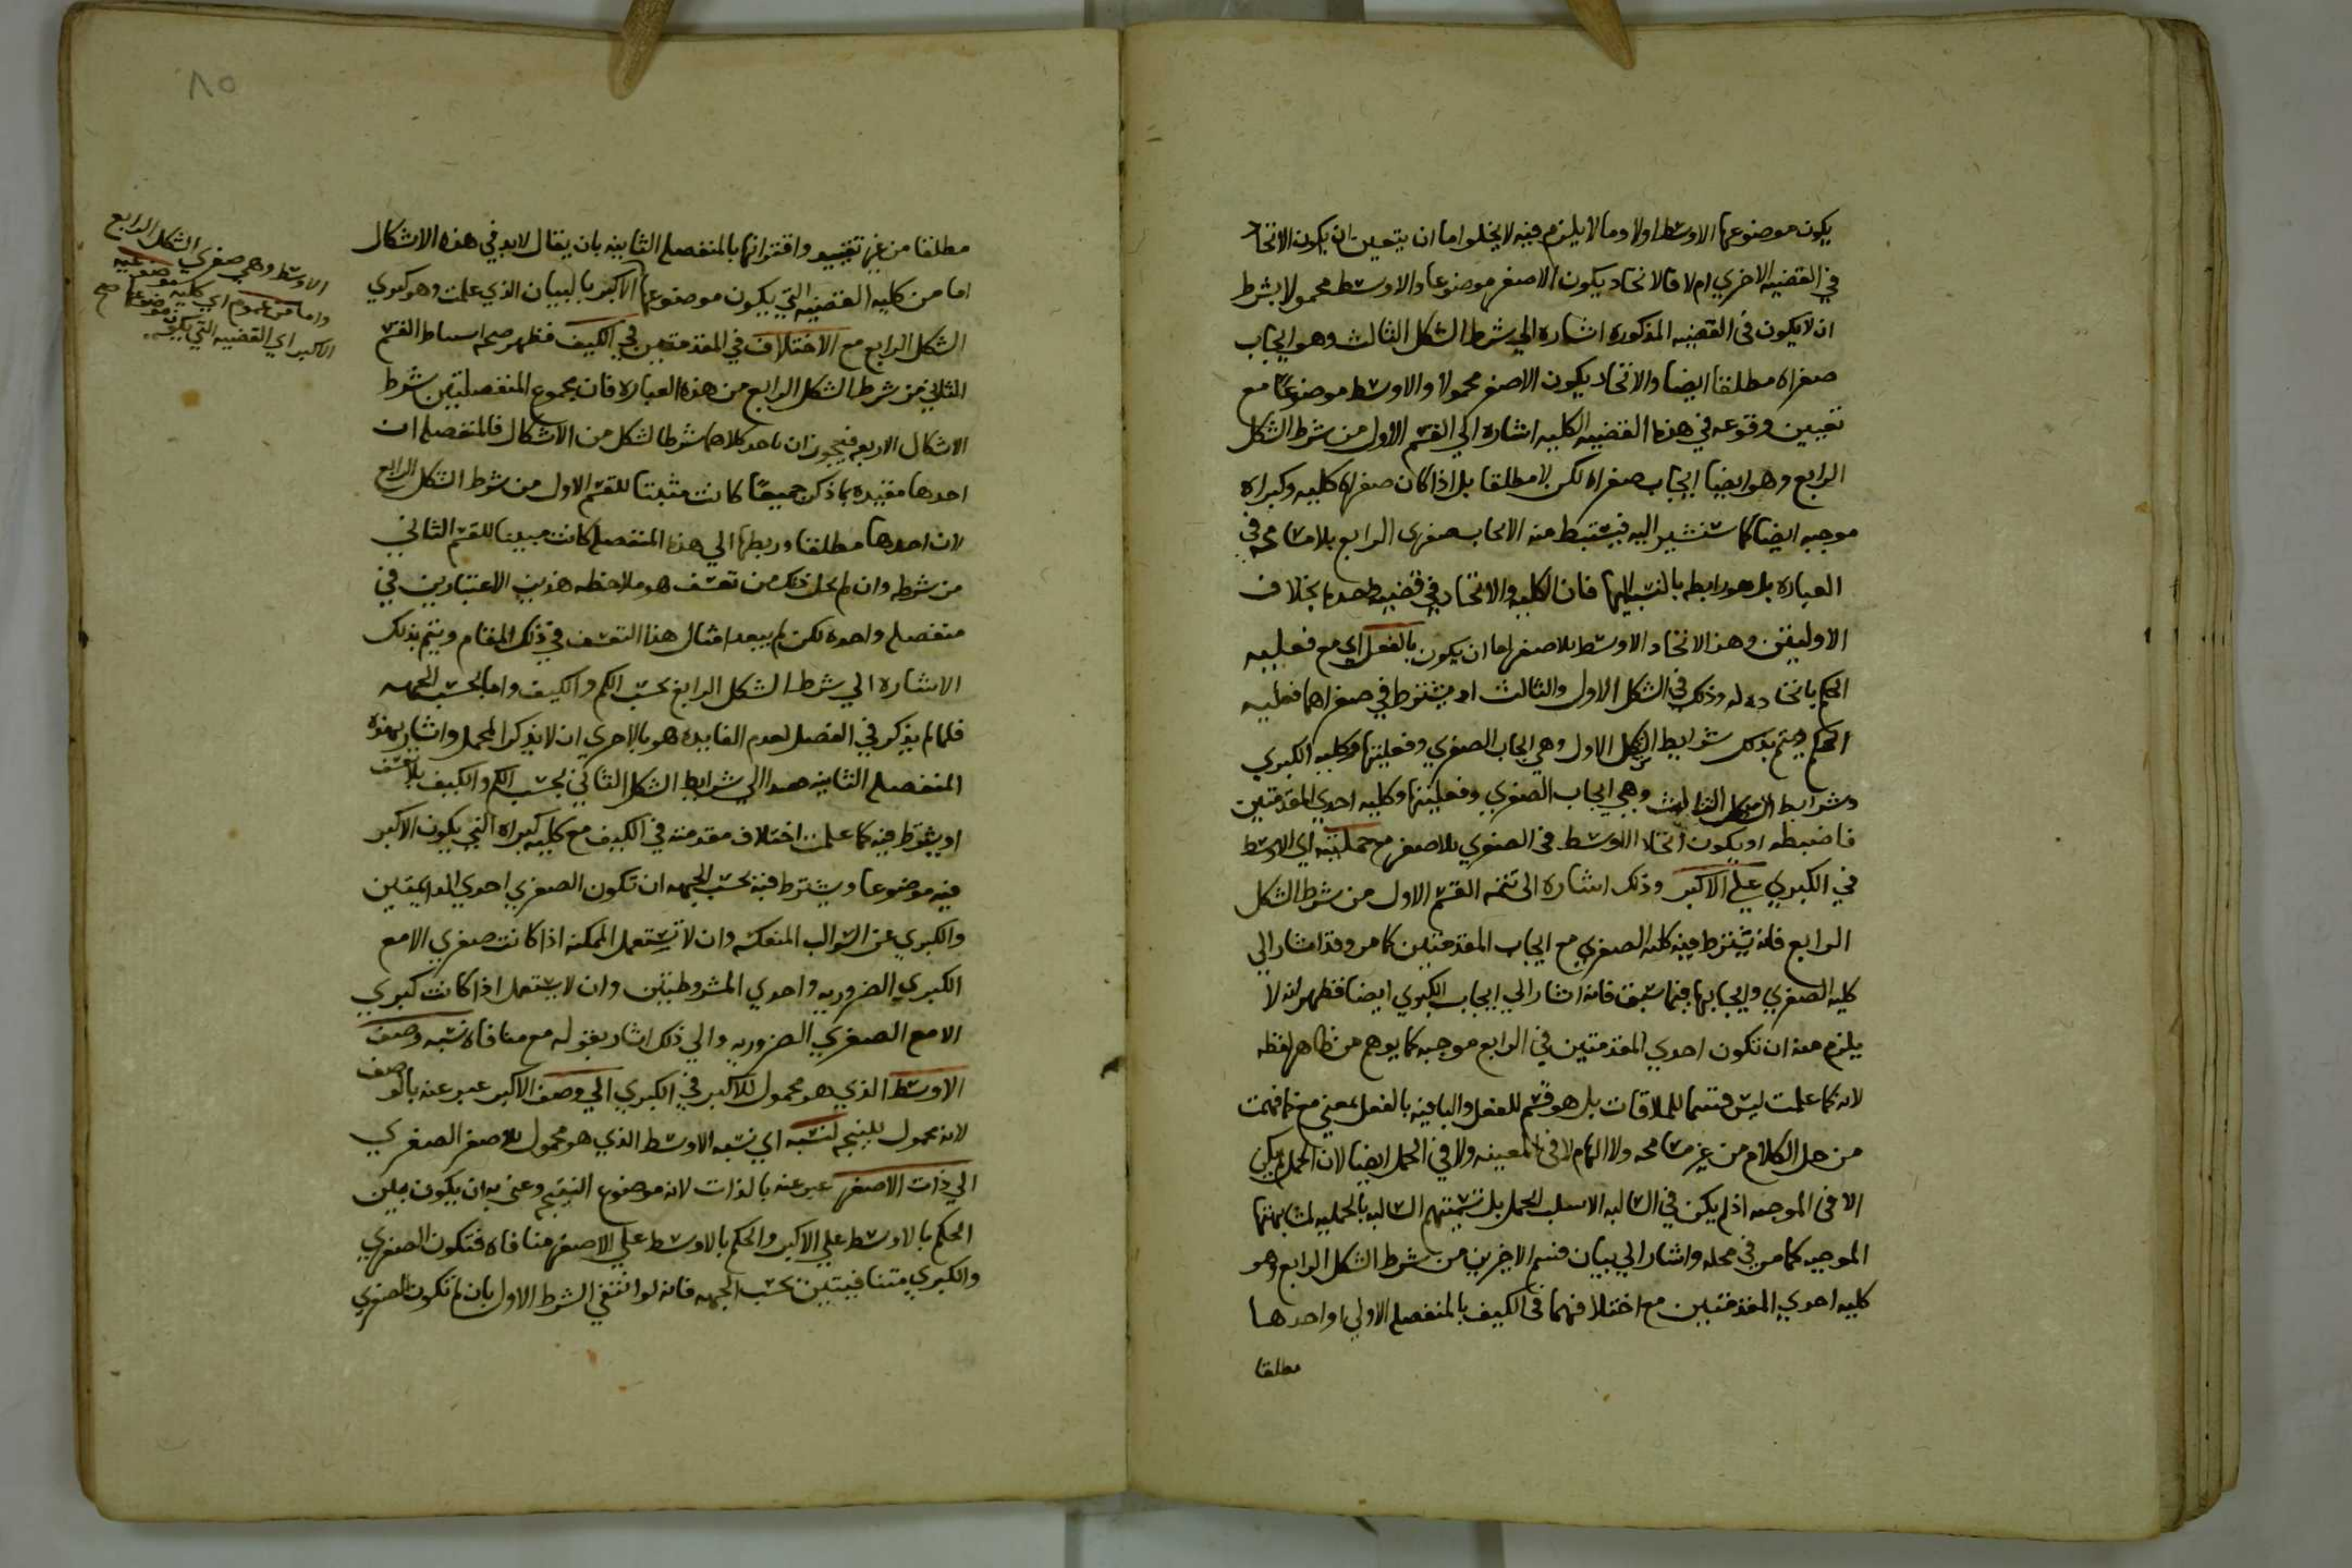 يكون موضوعها الاوسط اولا وما لا يلزم فيه لا يخلو اما ان يتعين ان يكون الاتحاد
في القضيه الاخري ام لا فالاتحاد يكون الاصغر موضوعا والاوسط محمولا بشرط
ان لا يكون في القضيه المذكوره اشاره الي شرط الشكل الثالث وهو ايجاب
صغراه مطلقا ايضا والاتحاد يكون الاصغر محمولا والاوسط موضوعا مع
تعيين وقوعه في هذه القضيه الكليه اشاره الي القسم الاول من شرط الشكل
الرابع وهو ايضا ايجاب صغراه لكن لا مطلقا بل اذا كان صغراه كليه وكبراه
موجبه ايضا كما ستشير اليه فيستنبط منه الايجاب صغري الرابع بلا مسامحه في
العباره بل هو رابطه بالنسبه اليها فان الكليه والاتحاد في قضيه واحده بخلاف
الاوليين وهذا الاتحاد الاوسط بالاصغر اما ان يكون بالفعل اي مع فعليه
الحكم باتحاده له وذلك في الشكل الاول والثالث اذ يشترط في صغراهما فعليه
الحكم ويتم بذلك شرايط الشكل الاول وهي ايجاب الصغري وفعليتها وكليه الكبري
وشرايط الشكل الثالث وهي ايجاب الصغري وفعليتها وكليه احدي المقدمتين
فاضبطه او يكون اتحاد الاوسط في الصغري بالاصغر مع حمليته اي الاوسط
في الكبري علي الاكبر وذلك اشاره الي تتمه القسم الاول من شرط الشكل
الرابع فانه يشترط فيه كليه الصغري مع ايجاب المقدمتين كما مر وقد اشار الي
كليه الصغري وايجابها فيما سبق فانه اشار الي ايجاب الكبري ايضا فظهر انه لا
يلزم منه ان تكون احدي المقدمتين في الرابع موجبه كما يوهم من ظاهر لفظه
لانه كما علمت ليس قسما للملاقات بل هو قسم للفعل والباقيه بالفعل بمعني مع كما فهمت
من حل الكلام من غير مسامحه ولا ايهام لا في المعينه ولا في الحمل ايضا لان الحمل لم يكن
الا في الموجبه اذ لم يكن في السالبه الا سلب الحمل بل تسميتهم السالبه بالحمليه لمشابهتها
الموجبه كما مر في محله واشار الي بيان قسم الاخرين من شرط الشكل الرابع وهو
كليه احدي المقدمتين مع اختلافهما في الكيف بالمنفصله الاولي او احدها
مطلقا
٨٥
مطلقا من غير تقييد واقترانها بالمنفصله الثانيه بان يقال لا بد في هذه الاشكال
اما من كليه القضيه التي يكون موضوعها الاكبر بالبيان الذي علمت وهو كبري
الشكل الرابع مع الاختلاف في المقدمتين في الكيف فظهر صحه اسقاط القسم
الثاني من شرط الشكل الرابع من هذه العباره فان مجموع المنفصلتين شرط
الاشكال الاربعه فيجوز ان ياخد كلاهما شرطا لشكل من الاشكال فالمنفصله ان
احدها مقيده بما ذكر جميعا كانت مثبتا للقسم الاول من شرط الشكل الرابع
لان احدها مطلقا وربطها الي هذه المنفصله كانت مبينا للقسم الثاني
من شرطه وان لم يخل ذلك من تعسف هو ملاحظه هذين الاعتبارين في
منفصله واحده لكن لم يبعد امثال هذا التعسف في ذلك المقام ويتم بذلك
الاشاره الي شرط الشكل الرابع بحسب الكم والكيف واما بحسب الجهه
فلما لم يذكر في الفصل لعدم الفايده هو بالاحري ان لا يذكر المجمل واشار بهذه
المنفصله الثانيه هذا الي شرايط الشكل الثاني بحسب الكم والكيف بلا تعسف
او يشترط فيه كما علمت اختلاف مقدمته في الكيف مع كليه كبراه التي يكون الاكبر
فيه موضوعا ويشترط فيه بحسب الجهه ان تكون الصغري احدي الدايمتين
والكبري من السوالب المنعكسه وان لا تستعمل الممكنه اذا كانت صغري الا مع
الكبري الضروريه واحدي المشروطتين وان لا يستعمل اذا كانت كبري
الا مع الصغري الضروريه والي ذلك اشار بقوله مع منافاه نسبه وصف
الاوسط الذي هو محمول للاكبر في الكبري الي وصف الاكبر عبر عنه بالوصف
لانه محمول للنتيجه لنسبه اي نسبه الاوسط الذي هو محمول للاصغر الصغري
الي ذات الاصغر عبر عنه بالذات لانه موضوع النتيجه وعني به ان يكون بين
الحكم بالاوسط علي الاكبر والحكم بالاوسط علي الاصغر منافاه فتكون الصغري
والكبري متنافيتين بحسب الجهه فانه لو انتفي الشرط الاول بان لم تكن الصغري
الاوسط وهي صغري الشكل الرابع
واما من عموم اي كليه موضوعيه
الاكبر اي القضيه التي يكون موضوعها صح